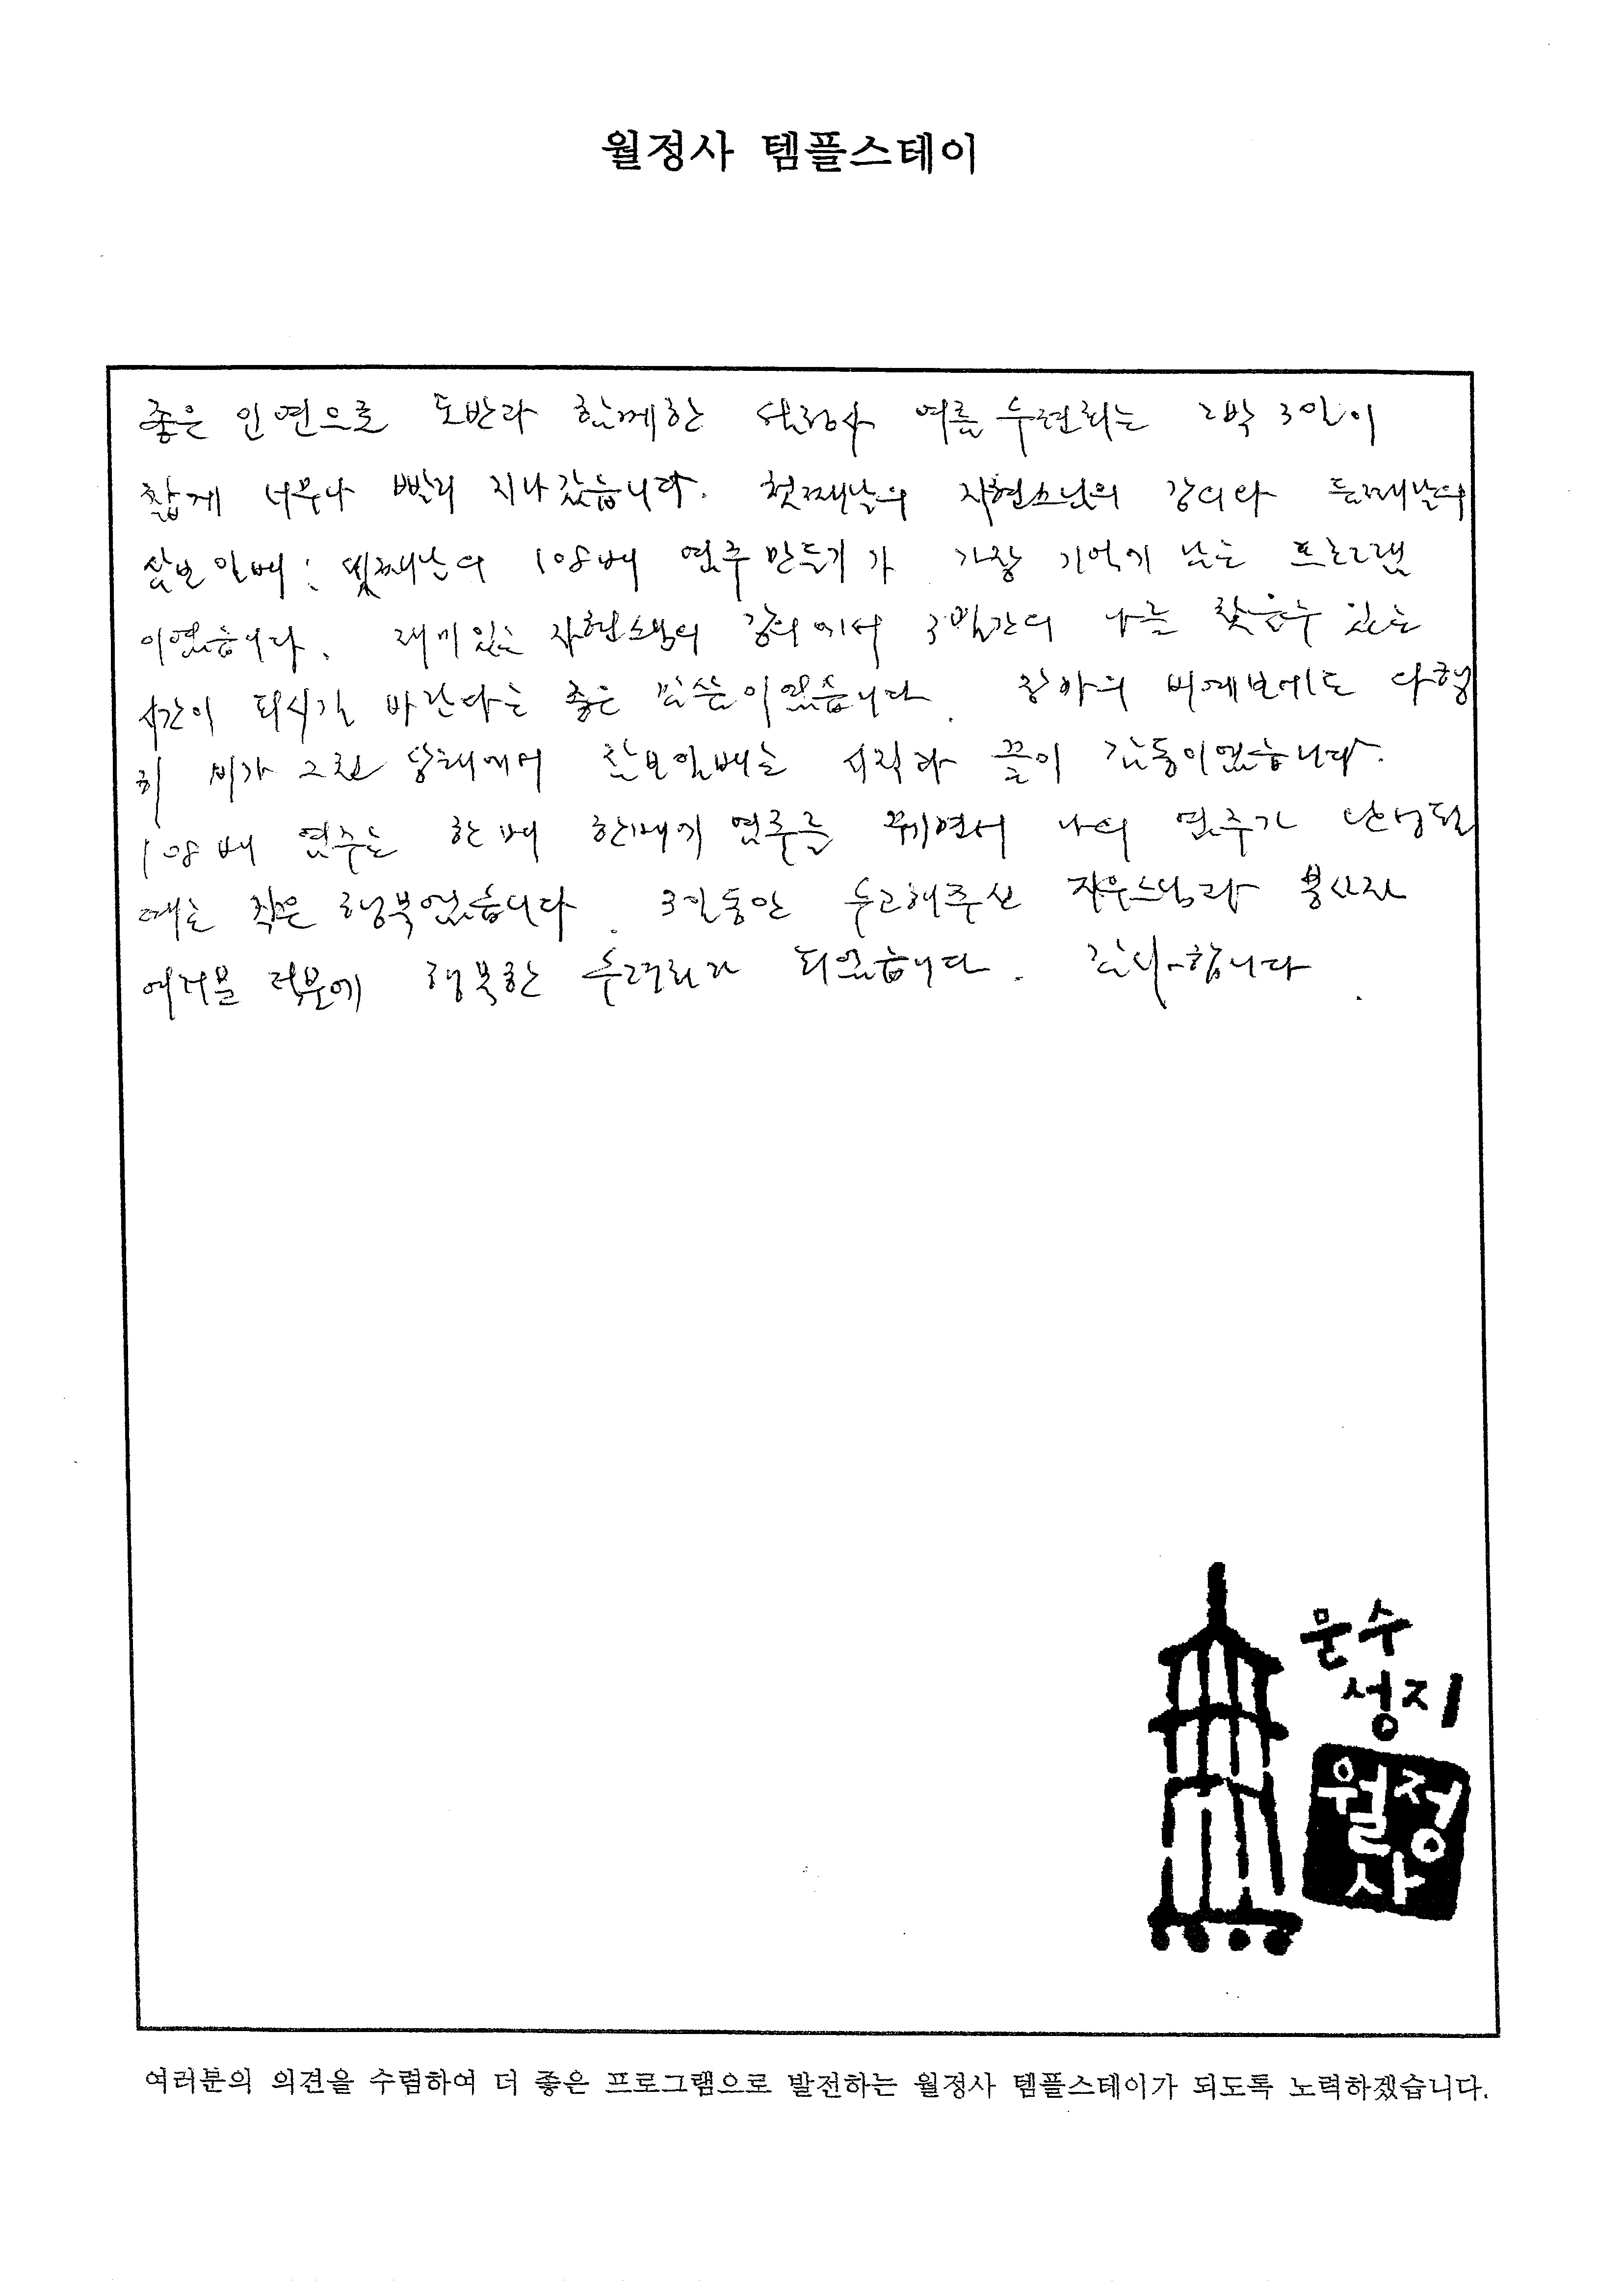 월정사 템플스테이
좋은 인연으로 도반과 함께한 월정사 여름수련회는 2박 3일이
짧게 너무나 빨리 지나갔습니다. 첫째날의 자현스님의 강의와 둘째날의
삼보일배: 셋째날의 108배 염주만들기가 가장 기억에 남는 프로그램
이였습니다. 재미있는 자현스님의 강의에서 3일간의 나를 찾을수 있는
시간이 되시길 바란다는 좋은 말씀이였습니다. 장마의 비예보에도 다행
히 비가 그친 상태에서 삼보일배는 시작과 끝이 감동이였습니다.
108배 염주는 한배 한배에 염주를 꿰면서 나의 염주가 완성될
때는 작은 행복였습니다. 3일동안 수고해주신 자우스님과 봉사자
여러분 덕분에 행복한 수련회가 되었습니다. 감사합니다.
문수
성지
월정
사
여러분의 의견을 수렴하여 더 좋은 프로그램으로 발전하는 월정사 템플스테이가 되도록 노력하겠습니다.